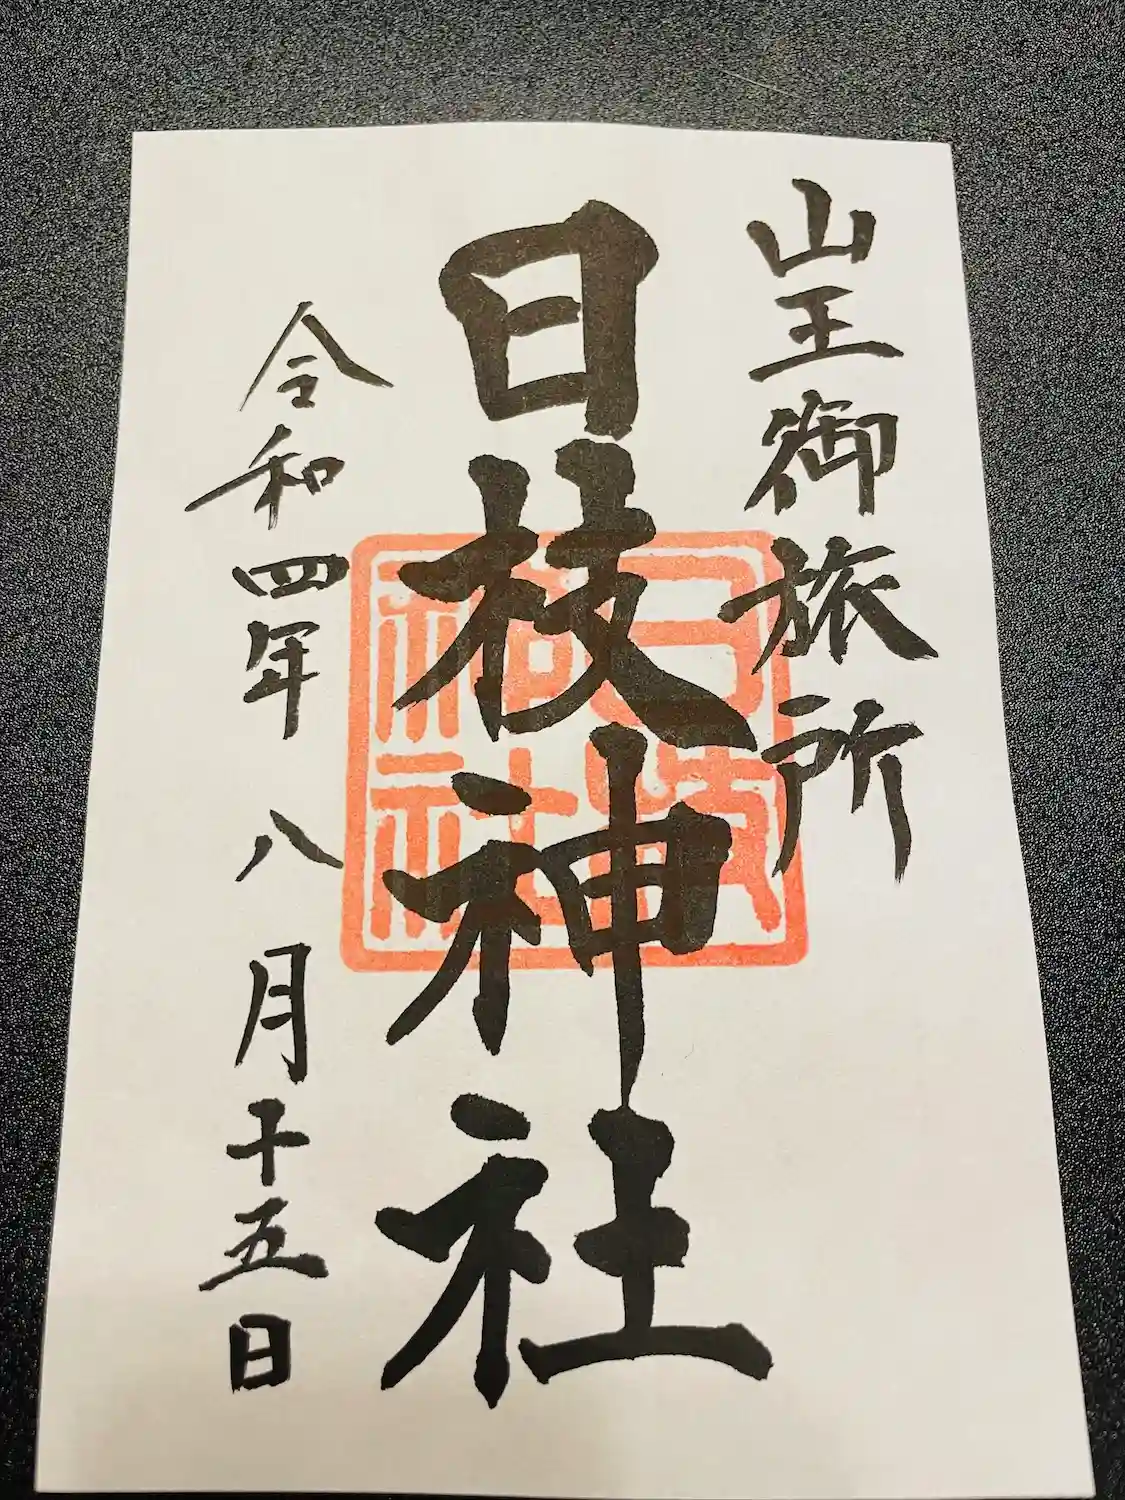 山王御旅所
日枝神社
令和四年八月十五日
日枝
神社